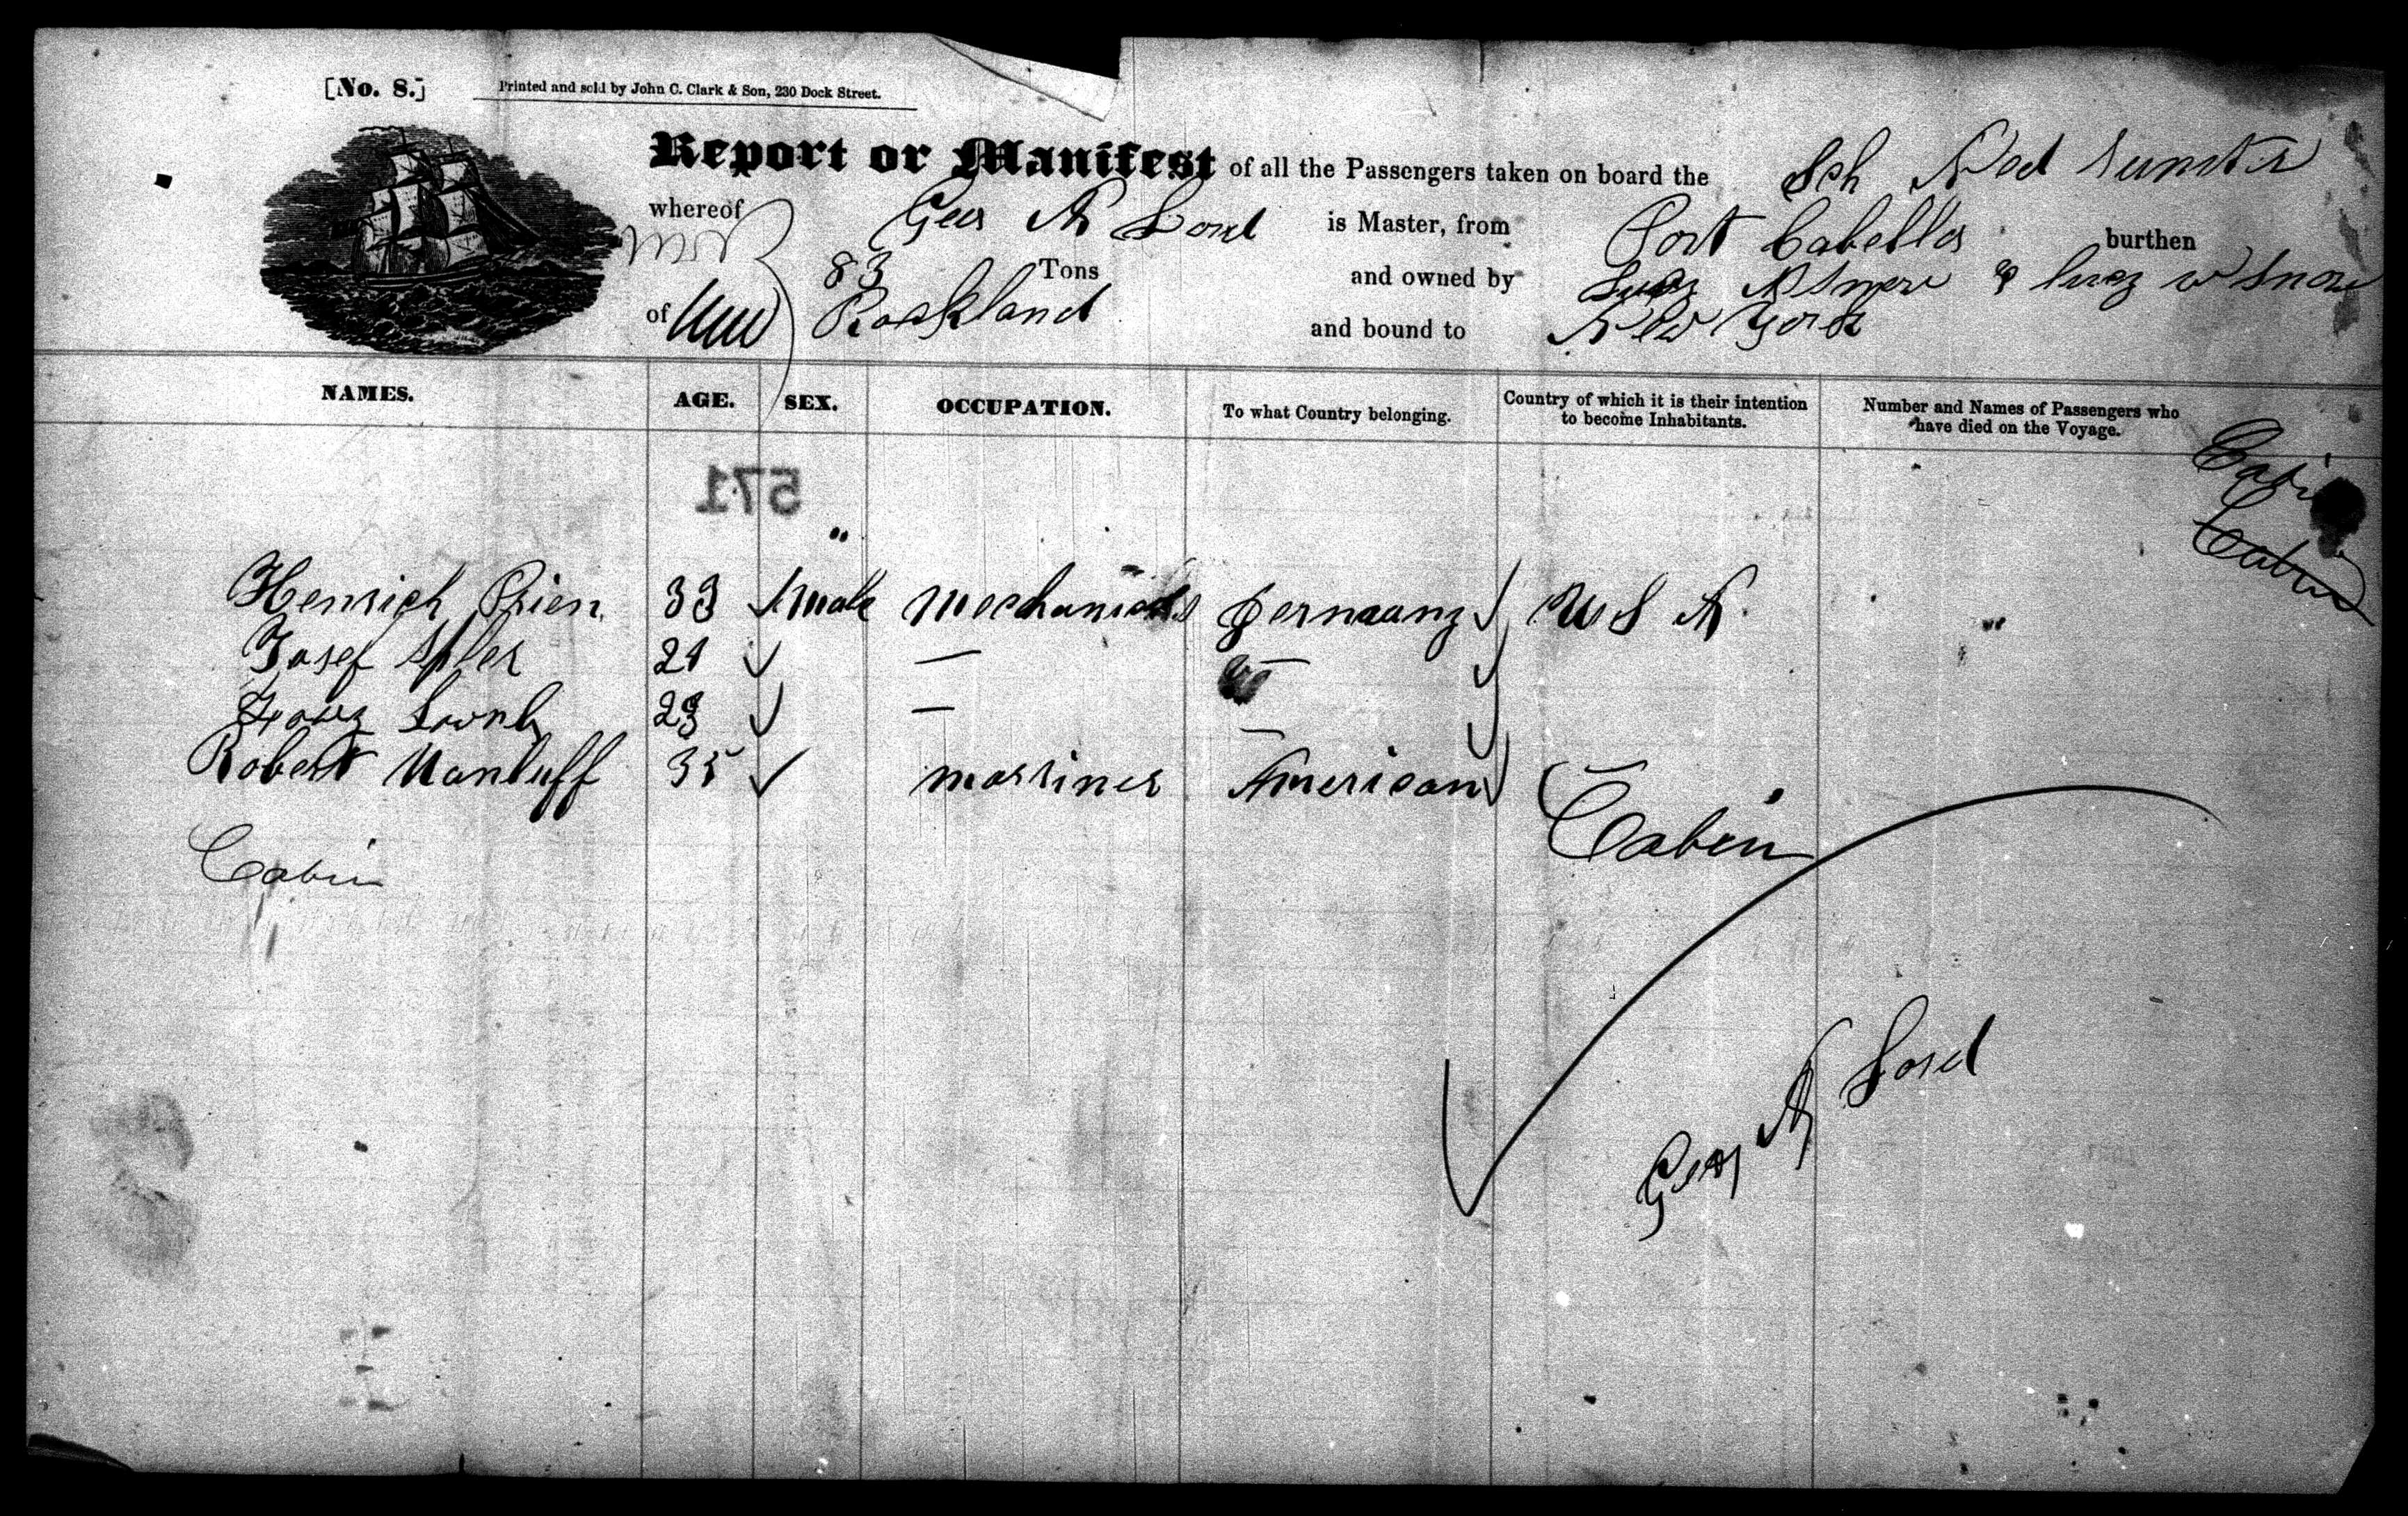 [No. 8.]
Printed and sold by John C. Clark & Son, 230 Dock Street.
Report or Manifest of all the Passengers taken on board the Sch Ned Sumter
whereof Geo A Lord is Master, from Port Cabello burthen
83 Tons and owned by & Snow
of Rockland and bound to New York
NAMES. AGE. SEX. OCCUPATION. To what Country belonging. Country of which it is their intention to become Inhabitants. Number and Names of Passengers who have died on the Voyage.
Cabin
Cabin
571
Henrich Prien 33 Male Mechanicks Germany U S A
Josef 21 — —
23 — —
Robert Manluff 35 marriner American
Cabin
Cabin
Geo A Lord